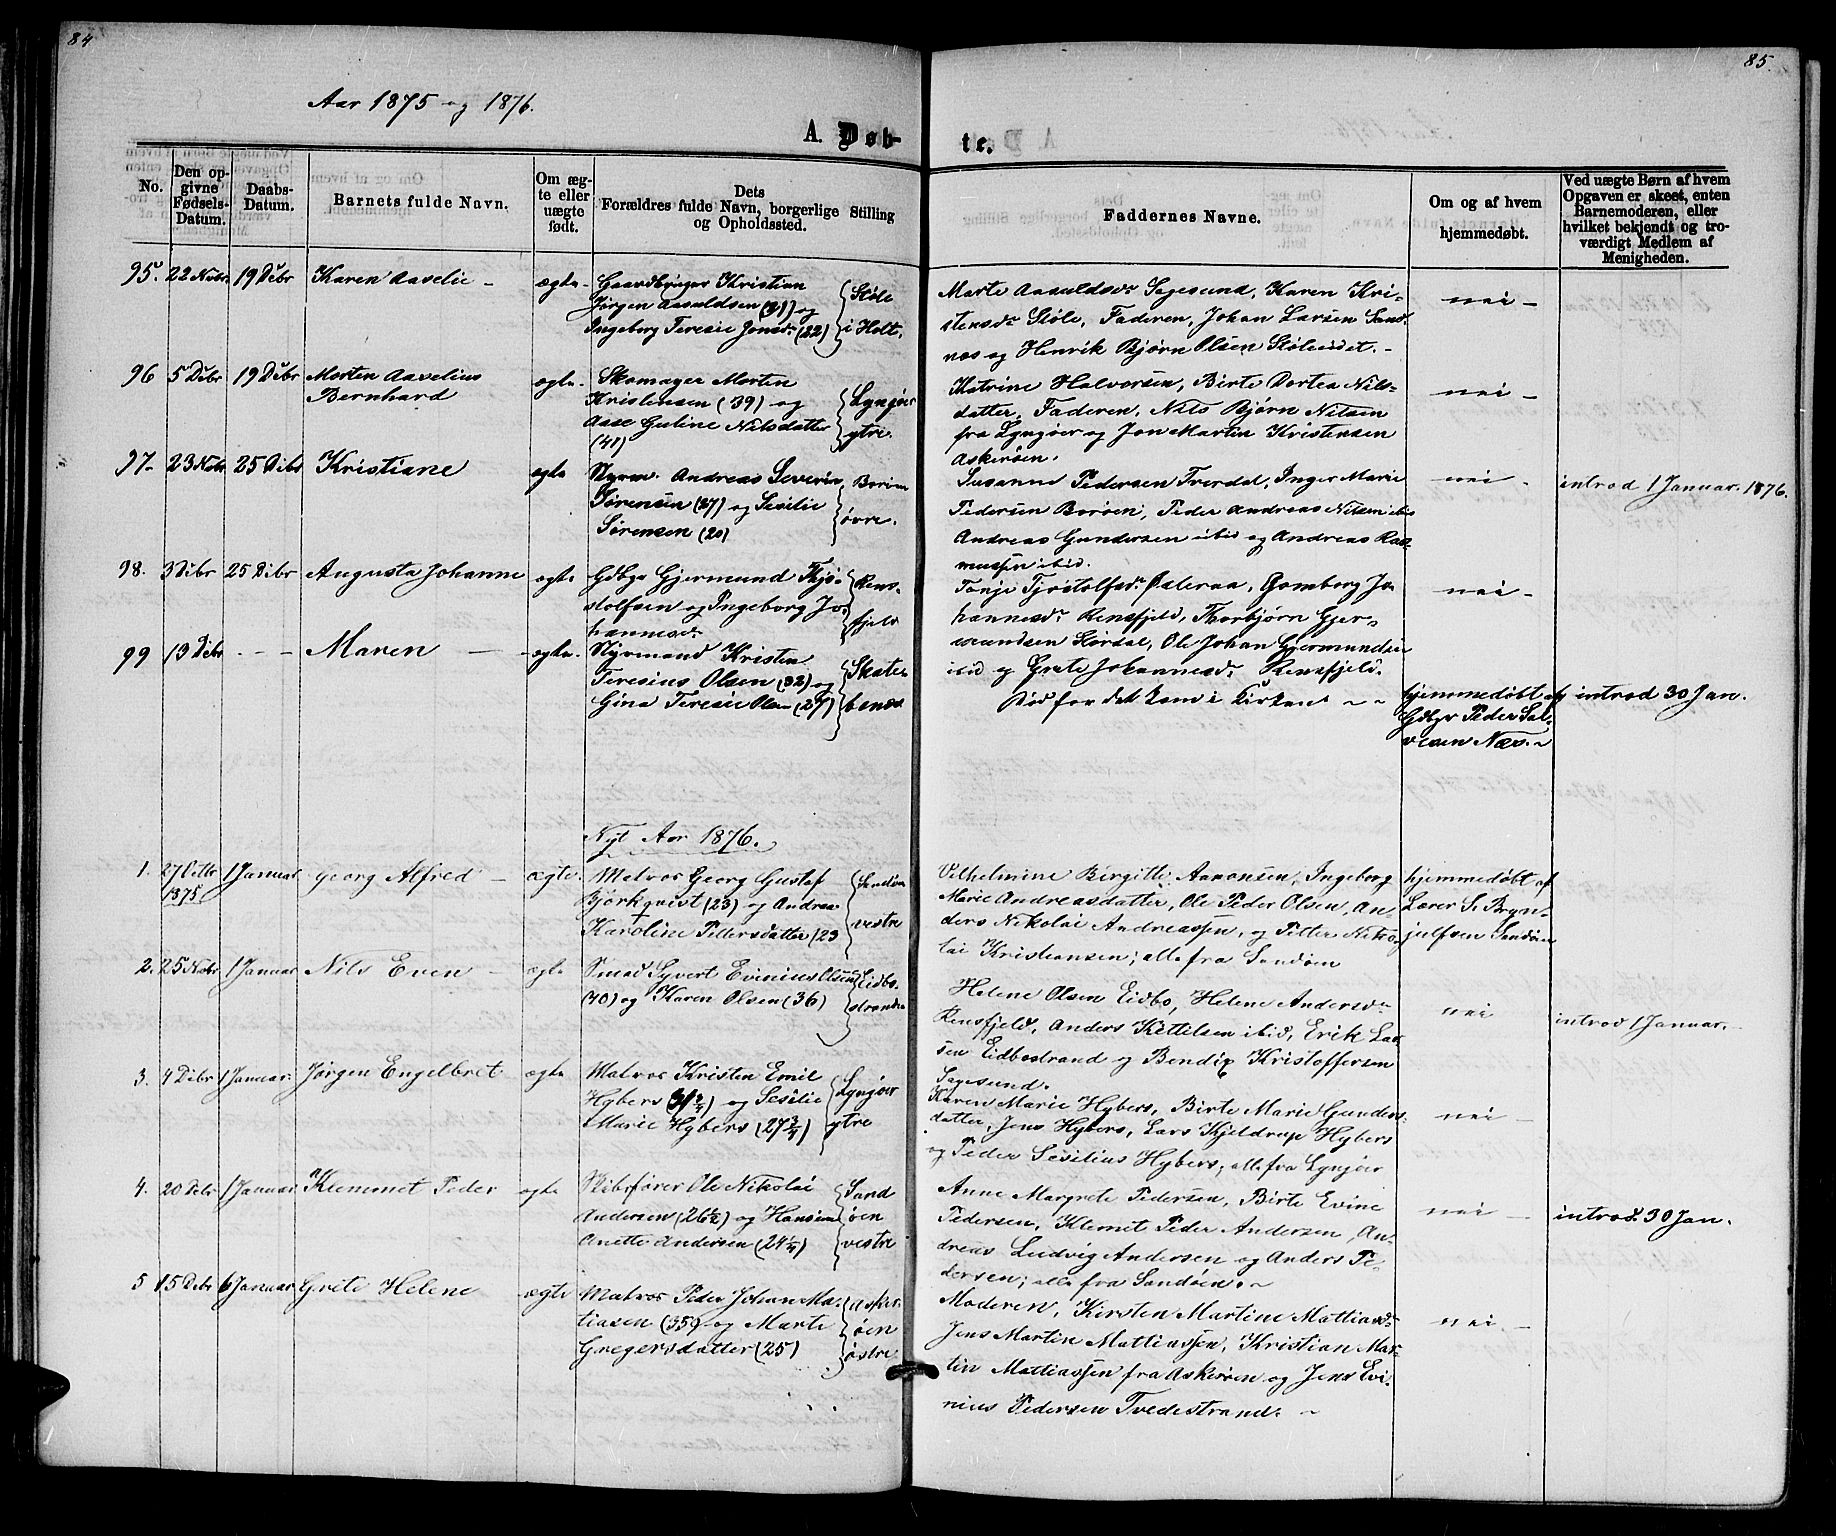 84
85.
Aar 1875 og 1876.
A. Døb-
te.
No.
Den op-
givne
Fødsels-
Datum.
Daabs-
Datum.
Barnets fulde Navn.
Om æg-
te eller
uægte
født.
Dets
Forældres fulde Navn, borgerlige Stilling
og Opholdssted.
Faddernes Navne.
Om og af hvem
hjemmedøbt.
Ved uægte Børn af hvem
Opgaven er skeet, enten
Barnemoderen, eller
hvilket bekjendt og tro-
værdigt Medlem af
Menigheden.
95. 22 Nobr 19 Dibr Karen Aaselie - ægte
Gaardbruger Kristian
Jørgen Aasuldsen (31) og
Ingeborg Teresie Jonsd. (22)
Støle
i Holt.
Marte Aasuldsdr Sagesund, Karen Kri-
stensdr Støle, Faderen, Johan Larsen Sand-
næs og Henrik Bjørn Olsen Støleidet. -
nei -
96 5 Dibr 19 Dibr Morten Aaselius
Bernhard
ægte.
Skomager Morten
Kristensen (39) og
Aase Guline Nilsdatter
(41)
Lyngøer
ytre.
Katrine Halvorsen, Birte Dortea Nils-
datter, Faderen, Nils Bjørn Nilsen
fra Lyngøer og Jon Martin Kristensen
Askerøen.
nei -
97- 23 Nobr 25 Dibr Kristiane ægte
Styrm. Andreas Severin
Sørensen (27) og Sesilie
Sørensen (20)
Borøen
øvre.
Susanne Pedersen Tverdal, Inger Marie
Pedersen Borøen, Peder Andreas Nilsen ibid
Andreas Gundersen ibid og Andreas Ras-
mussen ibid.
nei -
introd 1 Januar. 1876.
98. 3 Dibr 25 Dibr Augusta Johanne ægte
Gdbgr Gjermund Thjo-
stolfsen og Ingeborg Jo-
hannesdr
Rens-
fjeld
Tonje Tjostolfsdr Østeraa, Gomborg Jo-
hannesdr Rensfjeld, Thorbjørn Gjer-
mundsen Størdal, Ole Johan Gjermundsen
ibid og Grete Johannesdr Rensfjeld.
nei -
99 13 Dibr - - - Maren - ægte.
Styrmand Kristen
Teresius Olsen (32) og
Gina Teresie Olsen (27)
Skate-
benes
Død før det kom i Kirken ~ ~
hjemmedøbt af
Gdbgr Peder Sal-
vesen Næs. ~
introd 30 Jan.
Nyt Aar 1876.
1. 27 Octbr
1875
1 Januar Georg Alfred - ægte
Matros Georg Gustaf
Bjørkqvist (23) og Andrea
Karoline Pettersdatter (23
Sandøen
vestre
Vilhelmine Birgitte Aanonsen, Ingeborg
Marie Andreasdatter, Ole Peder Olsen, An-
ders Nikolai Andreassen, og Petter Niko-
lai Kristiansen; alle fra Sandøen
hjemmedøbt af
Lærer S. Bryn-
julfsen Sandøen
2. 25 Nobr 1 Januar Nils Even - ægte
Smed Syvert Evinius Olsen
(40) og Karen Olsen (36)
Eidbo-
stranden
Helene Olsen Eidbo, Helene Andersdr
Rensfjeld, Anders Kettelsen ibid, Erik Lar-
sen Eidbostrand og Bendix Kristoffersen
Sagesund.
nei
introd 1 Januar.
3. 4 Dibr 1 Januar. Jørgen Engelbret ægte
Matros Kristen Emil
Hybers (31 3/4) og Sesilie
Marie Hybers (27 3/4)
Lyngøer
ytre
Karen Marie Hybers, Birte Marie Gunders-
datter, Jens Hybers, Lars Kjeldrup Hybers
og Peder Sesilius Hybers; alle fra Lyngøer
nei
4. 20 Debr 1 Januar Klemmet Peder ægte
Skibsfører Ole Nikolai
Andersen (26 1/2) og Hansine
Anette Andersen (24 1/4)
Sand
øen
vestre
Anne Margrete Pedersen, Birte Evine
Pedersen, Klemet Peder Andersen, An-
dreas Ludvig Andersen og Anders Pe-
dersen; alle fra Sandøen. ~
nei -
introd. 30 Jan.
5 15 Debr 6 Januar Grete Helene ægte
Matros Peder Johan Ma-
tiasen (35) og Marte
Gregersdatter (25)
Asker-
øen
østre
Moderen, Kirsten Martine Mattiasdr
Jens Martin Mattiassen, Kristian Mar-
tin Mattiassen fra Askerøen og Jens Evi-
nius Pedersen Tvedestrand. ~
nei -